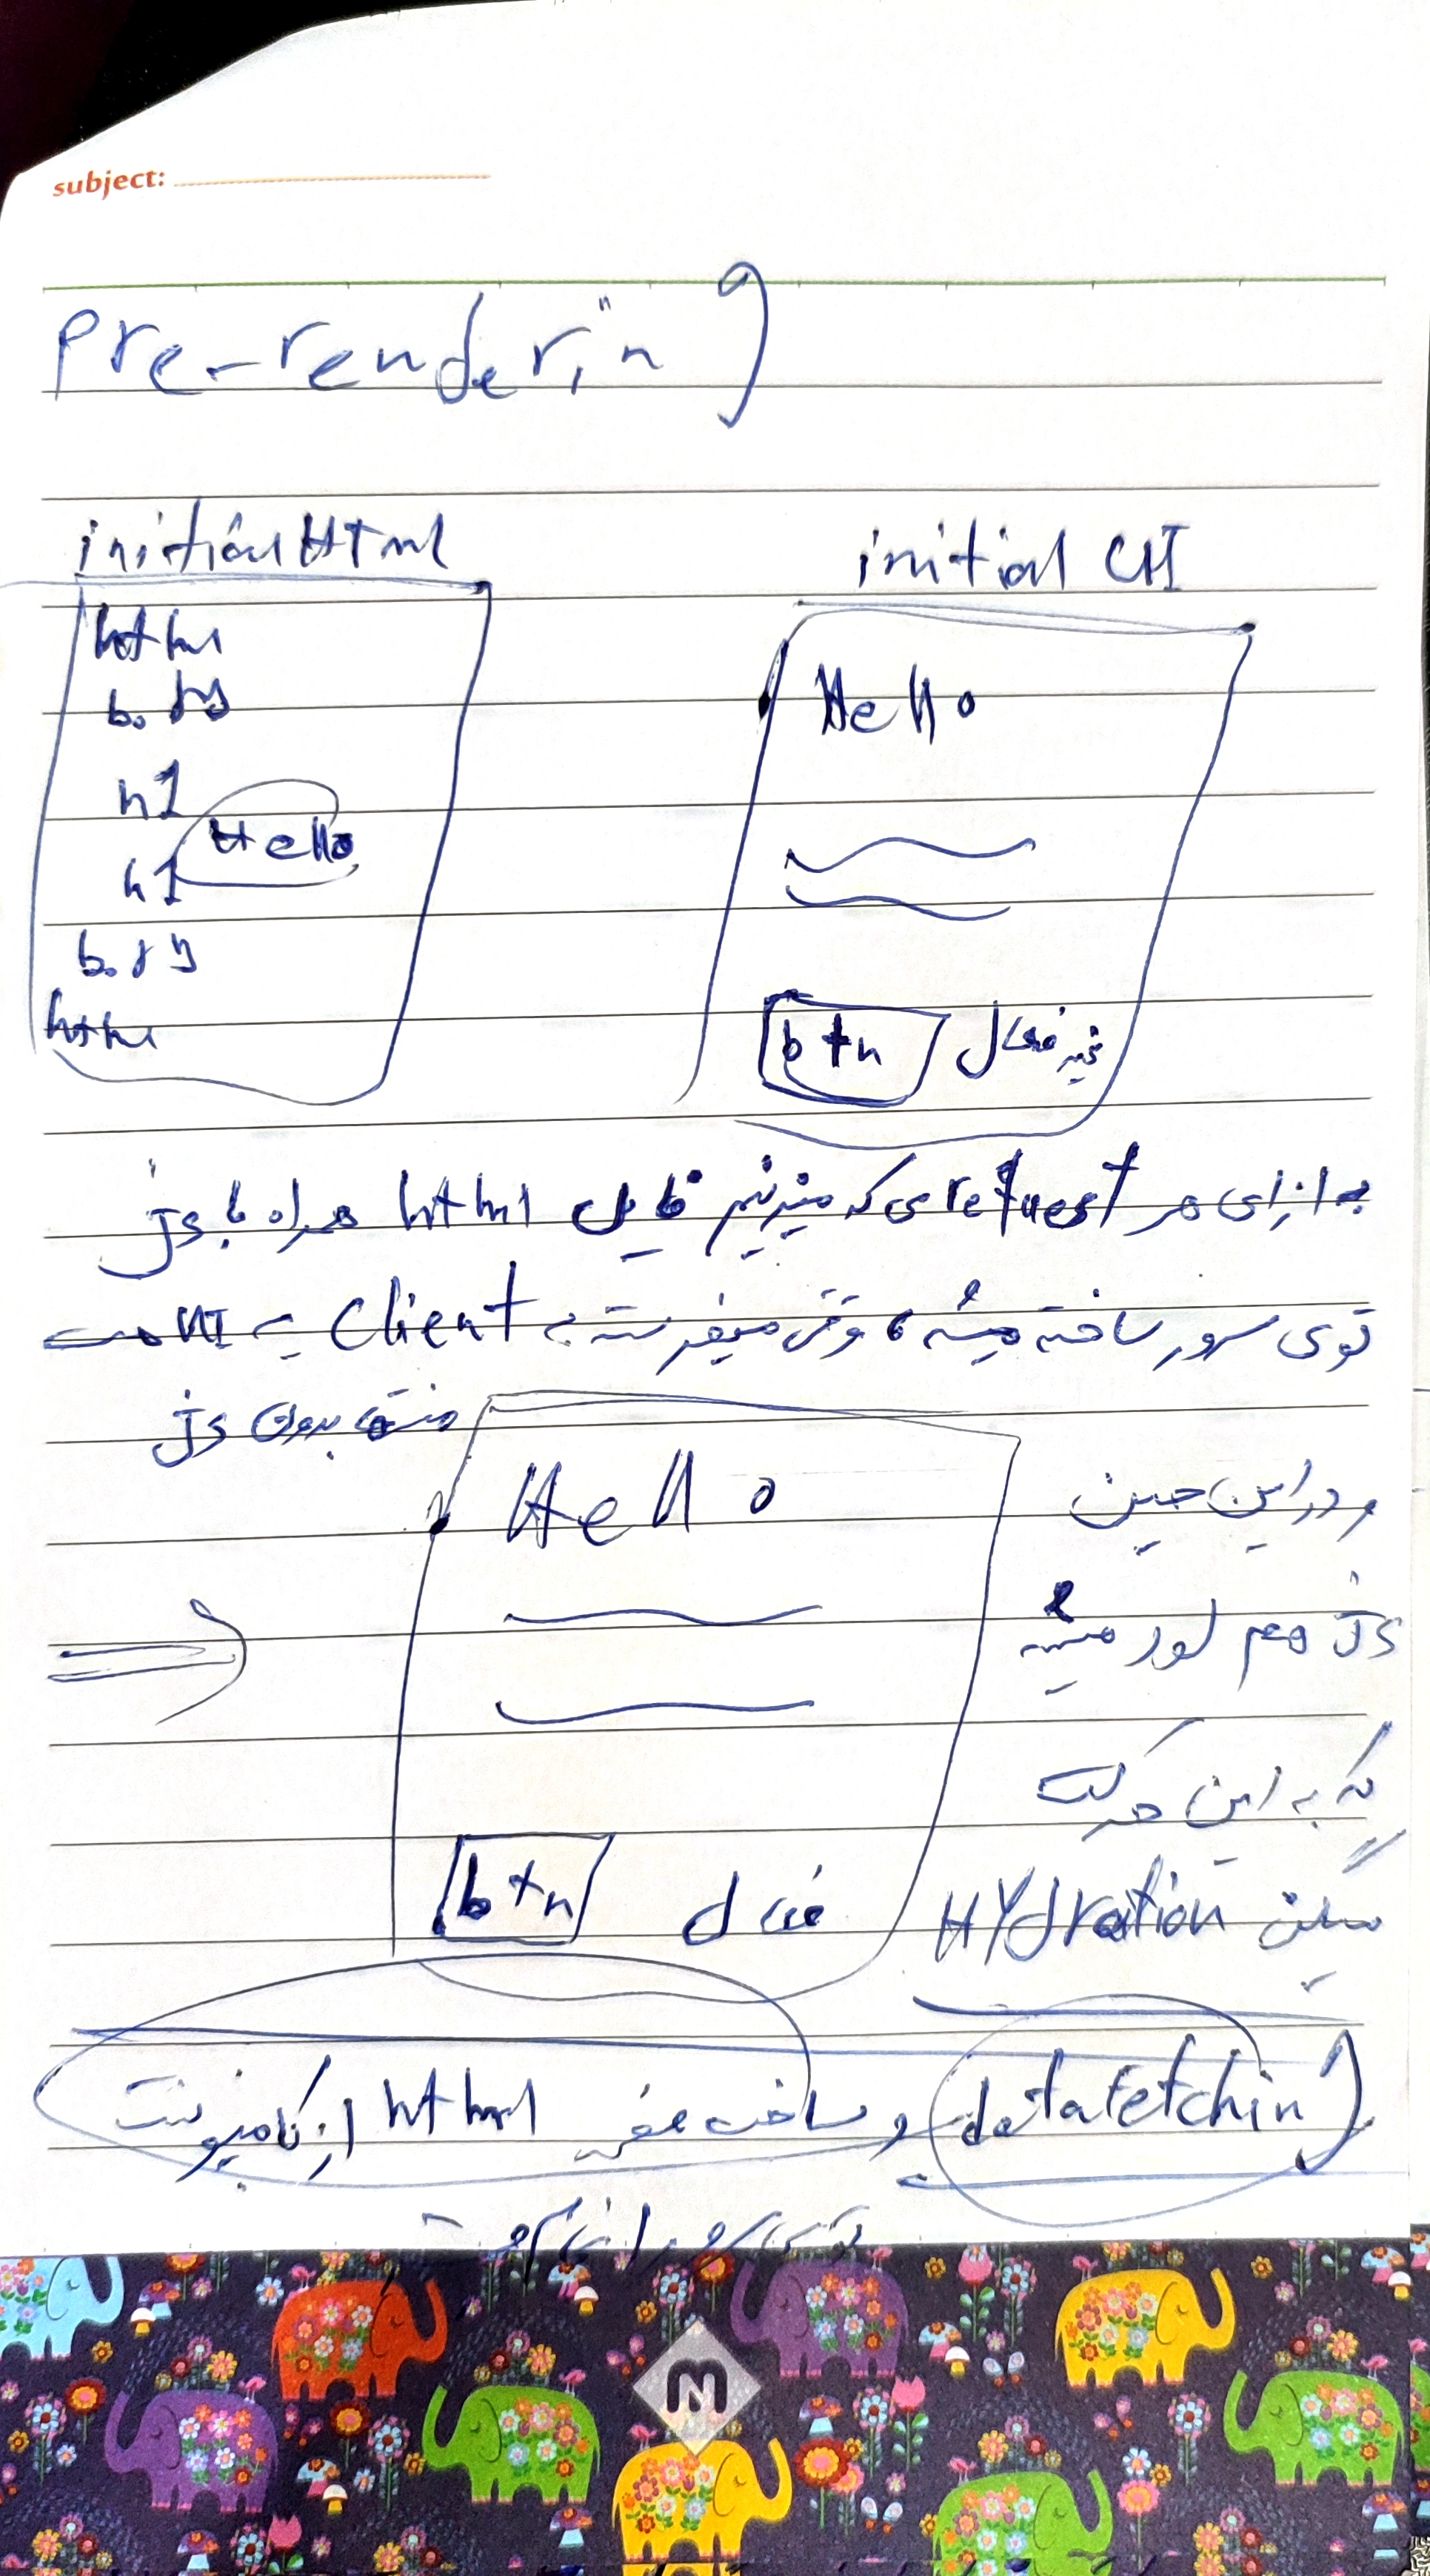 subject:
Pre-rendering
initial Html
html
body
h1
Hello
h1
body
html
initial UI
Hello
btn غیر فعال
به ازای هر requestی که میزنیم فایل html همراه با js
توی سرور ساخته میشه، وقتی میفرسته به Client یه UI هست
منتها بدون js
Hello
btn فعال
و در این حین
js هم لود میشه
که به این حرکت
میگن HYdration
datafetching و ساخت صفحه html از کامپوننت